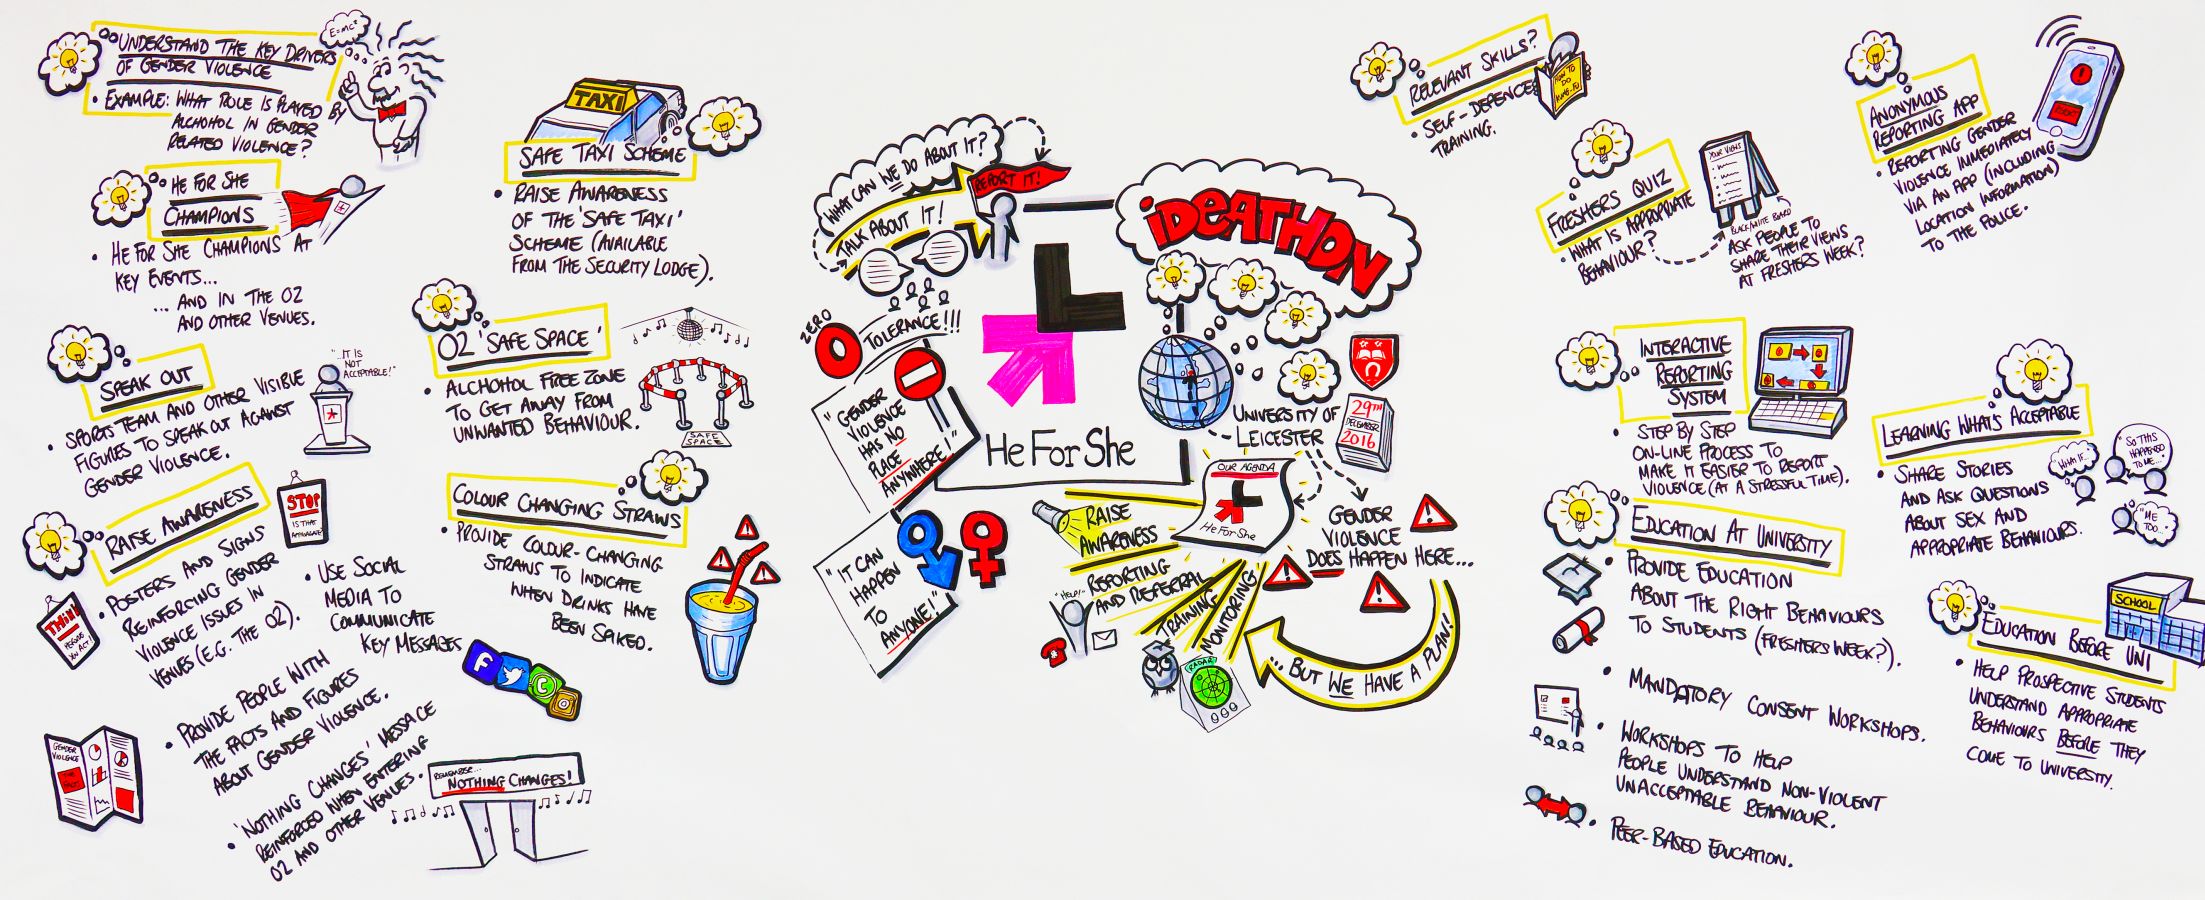 UNDERSTAND THE KEY DRIVERS
OF GENDER VIOLENCE
E=mc²
• EXAMPLE: WHAT ROLE IS PLAYED BY
ALCHOHOL IN GENDER
RELATED VIOLENCE?
HE FOR SHE
CHAMPIONS
• HE FOR SHE CHAMPIONS AT
KEY EVENTS...
... AND IN THE O2
AND OTHER VENUES.
SPEAK OUT
"...IT IS
NOT
ACCEPTABLE!"
• SPORTS TEAM AND OTHER VISIBLE
FIGURES TO SPEAK OUT AGAINST
GENDER VIOLENCE.
RAISE AWARENESS
STOP
IS THAT
APPROPRIATE?
THINK
BEFORE
YOU ACT!
• POSTERS AND SIGNS
REINFORCING GENDER
VIOLENCE ISSUES IN
VENUES (E.G. THE O2).
• USE SOCIAL
MEDIA TO
COMMUNICATE
KEY MESSAGES
f
• PROVIDE PEOPLE WITH
THE FACTS AND FIGURES
ABOUT GENDER VIOLENCE.
GENDER
VIOLENCE
THE
FACTS
• 'NOTHING CHANGES' MESSAGE
REINFORCED WHEN ENTERING
O2 AND OTHER VENUES.
REMEMBER...
NOTHING CHANGES!
TAXI
SAFE TAXI SCHEME
• RAISE AWARENESS
OF THE 'SAFE TAXI'
SCHEME (AVAILABLE
FROM THE SECURITY LODGE).
O2 'SAFE SPACE'
• ALCHOHOL FREE ZONE
TO GET AWAY FROM
UNWANTED BEHAVIOUR.
SAFE
SPACE
COLOUR CHANGING STRAWS
• PROVIDE COLOUR-CHANGING
STRAWS TO INDICATE
WHEN DRINKS HAVE
BEEN SPIKED.
WHAT CAN WE DO ABOUT IT?
REPORT IT!
TALK ABOUT IT!
ZERO
TOLERANCE!!!
"GENDER
VIOLENCE
HAS NO
PLACE
ANYWHERE!"
"IT CAN
HAPPEN
TO
ANYONE!"
He For She
IDEATHON
UNIVERSITY OF
LEICESTER
29TH
DECEMBER
2016
OUR AGENDA
He For She
GENDER
VIOLENCE
DOES HAPPEN HERE...
... BUT WE HAVE A PLAN!
RAISE
AWARENESS
REPORTING
AND REFERRAL
"HELP!"
TRAINING
MONITORING
RADAR
RELEVANT SKILLS?
HOW TO
DO
KUNG-FU
• SELF-DEFENCE
TRAINING.
FRESHERS QUIZ
• WHAT IS APPROPRIATE
BEHAVIOUR?
YOUR VIEWS
BLACK/WHITE BOARD
ASK PEOPLE TO
SHARE THEIR VIEWS
AT FRESHERS WEEK?
ANONYMOUS
REPORTING APP
• REPORTING GENDER
VIOLENCE IMMEDIATELY
VIA AN APP (INCLUDING
LOCATION INFORMATION)
TO THE POLICE.
INTERACTIVE
REPORTING
SYSTEM
• STEP BY STEP
ON-LINE PROCESS TO
MAKE IT EASIER TO REPORT
VIOLENCE (AT A STRESSFUL TIME).
LEARNING WHAT'S ACCEPTABLE
• SHARE STORIES
AND ASK QUESTIONS
ABOUT SEX AND
APPROPRIATE BEHAVIOURS.
"WHAT IF...
"SO THIS
HAPPENED
TO ME..."
"ME
TOO..."
EDUCATION AT UNIVERSITY
• PROVIDE EDUCATION
ABOUT THE RIGHT BEHAVIOURS
TO STUDENTS (FRESHERS WEEK?).
• MANDATORY CONSENT WORKSHOPS.
• WORKSHOPS TO HELP
PEOPLE UNDERSTAND NON-VIOLENT
UNACCEPTABLE BEHAVIOUR.
• PEER-BASED EDUCATION.
SCHOOL
EDUCATION BEFORE UNI
• HELP PROSPECTIVE STUDENTS
UNDERSTAND APPROPRIATE
BEHAVIOURS BEFORE THEY
COME TO UNIVERSITY.